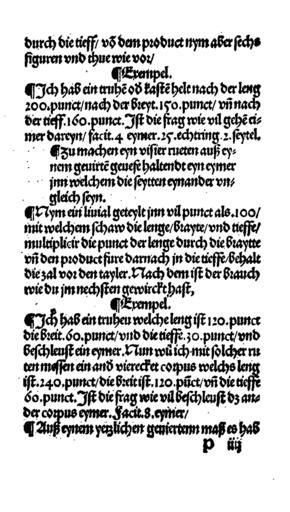 durch die tieff/ võ dem product nym aber sechs
figuren vnd thue wie vor/
¶ Exempel.
¶ Ich hab ein truhẽ oð kastẽ helt nach der leng
200.punct/nach der breyt.150.punct/ vñ nach
der tieff.160.punct. Ist die frag wie vil gehẽ ei-
mer dareyn/ facit.4 eymer.25.echtring.2.seytel.
¶ Zu machen eyn visier rueten auß ey-
nem geuirtẽ geuese haltendt eyn eymer
jnn welchem die seytten eynander vn-
gleich seyn.
¶ Nym ein liuial geteylt jnn vil punct als.100/
mit welchem schaw die lenge/brayte/vnd tieffe/
multiplicir die punct der lenge durch die braytte
vñ den product fure darnach jn die tieffe/behalt
die zal vor den tayler. Nach dem ist der brauch
wie du jm nechsten gewirckt hast,
¶ Exempel.
¶ Ich hab ein truhen welche leng ist 120.punct
die breit.60.punct/vnd die tieffe.30.punct/vnd
beschleust ein eymer. Nun wil ich mit solcher ru
ten messen ein and viereckct corpus welchs leng
ist.240.punct/die breit ist.120.pũct/vñ die tieffe
60.punct. Ist die frag wie vil beschleust dz an-
der corpus eymer. Facit.8.eymer/
¶ Auß eynem yetzlichen geuiertenn maß es hab
p iiij